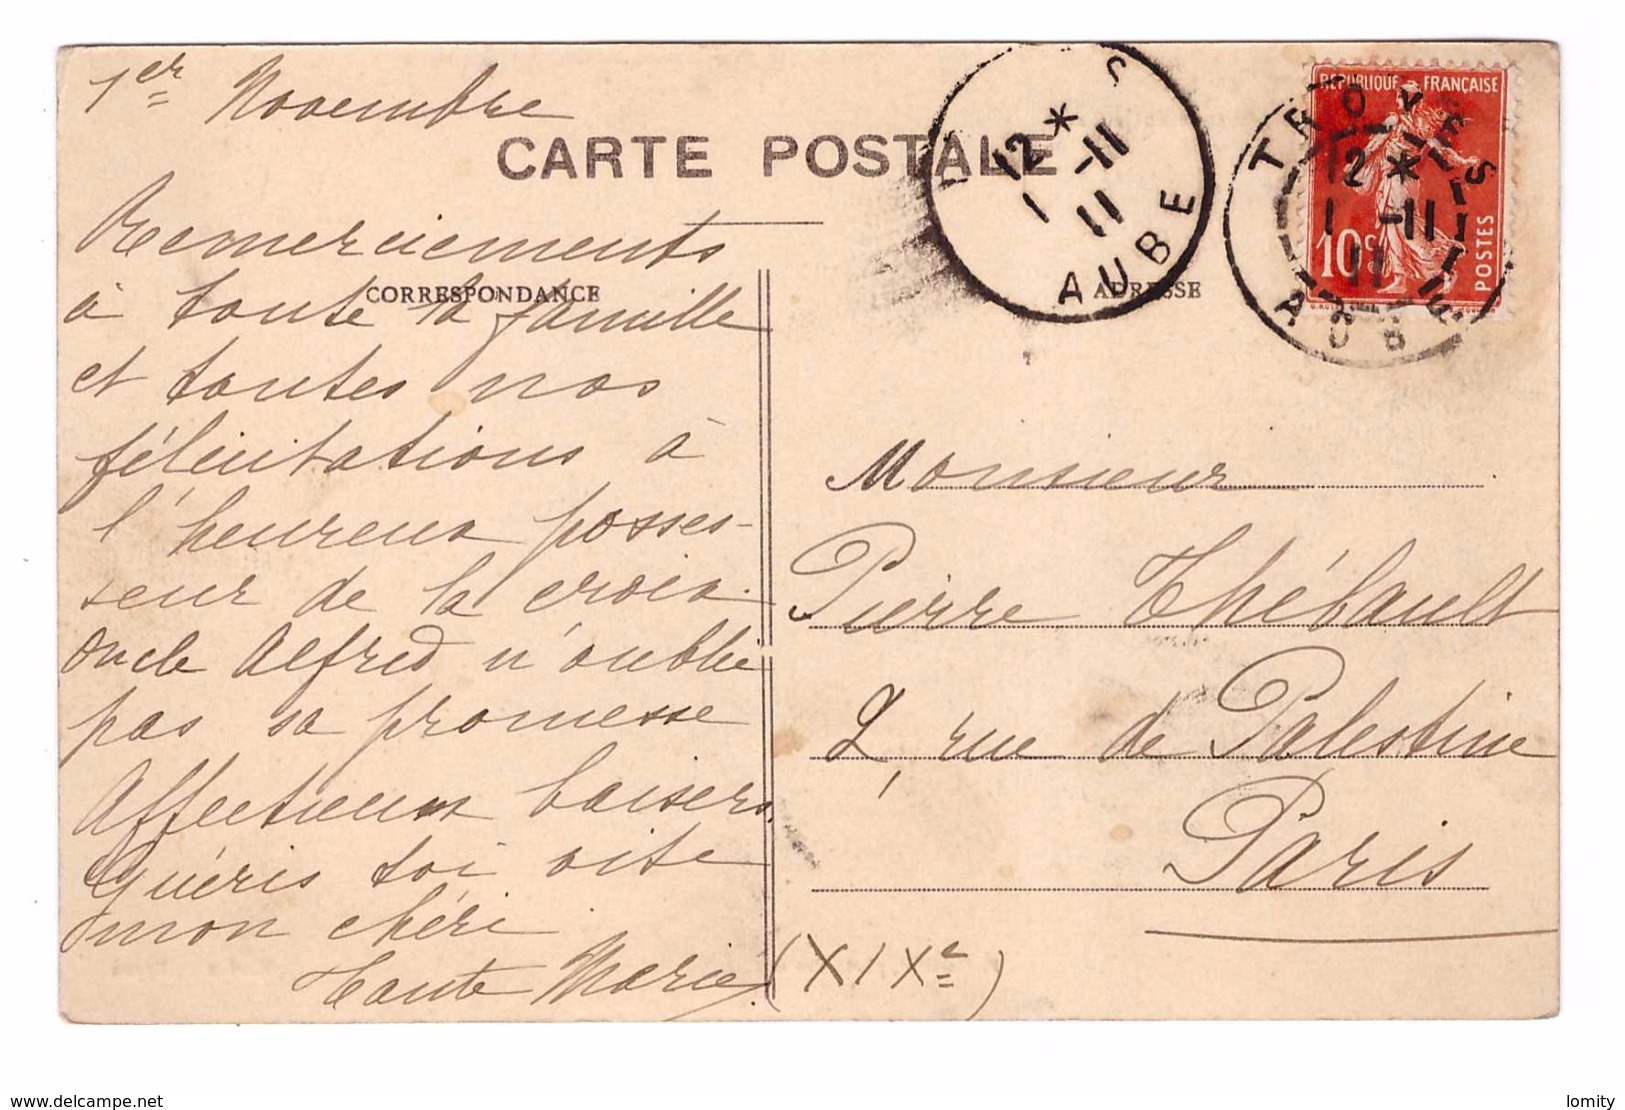 1er Novembre
CARTE POSTALE
Remerciements
CORRESPONDANCE
à toute la famille
et toutes nos
félicitations à
l'heureux posses-
seur de la croix.
Oncle Alfred n'oublie
pas sa promesse
Affectueux baisers.
Guéris toi vite
mon chéri
Tante Marie.
12 *
1 -11
11
AUBE
ADRESSE
RÉPUBLIQUE FRANÇAISE
10c
POSTES
TROYES
12 *
1 -11
11
AUBE
Monsieur
Pierre Thébault
7, rue de Palestine
Paris
(XIXe)
www.delcampe.net
lomity